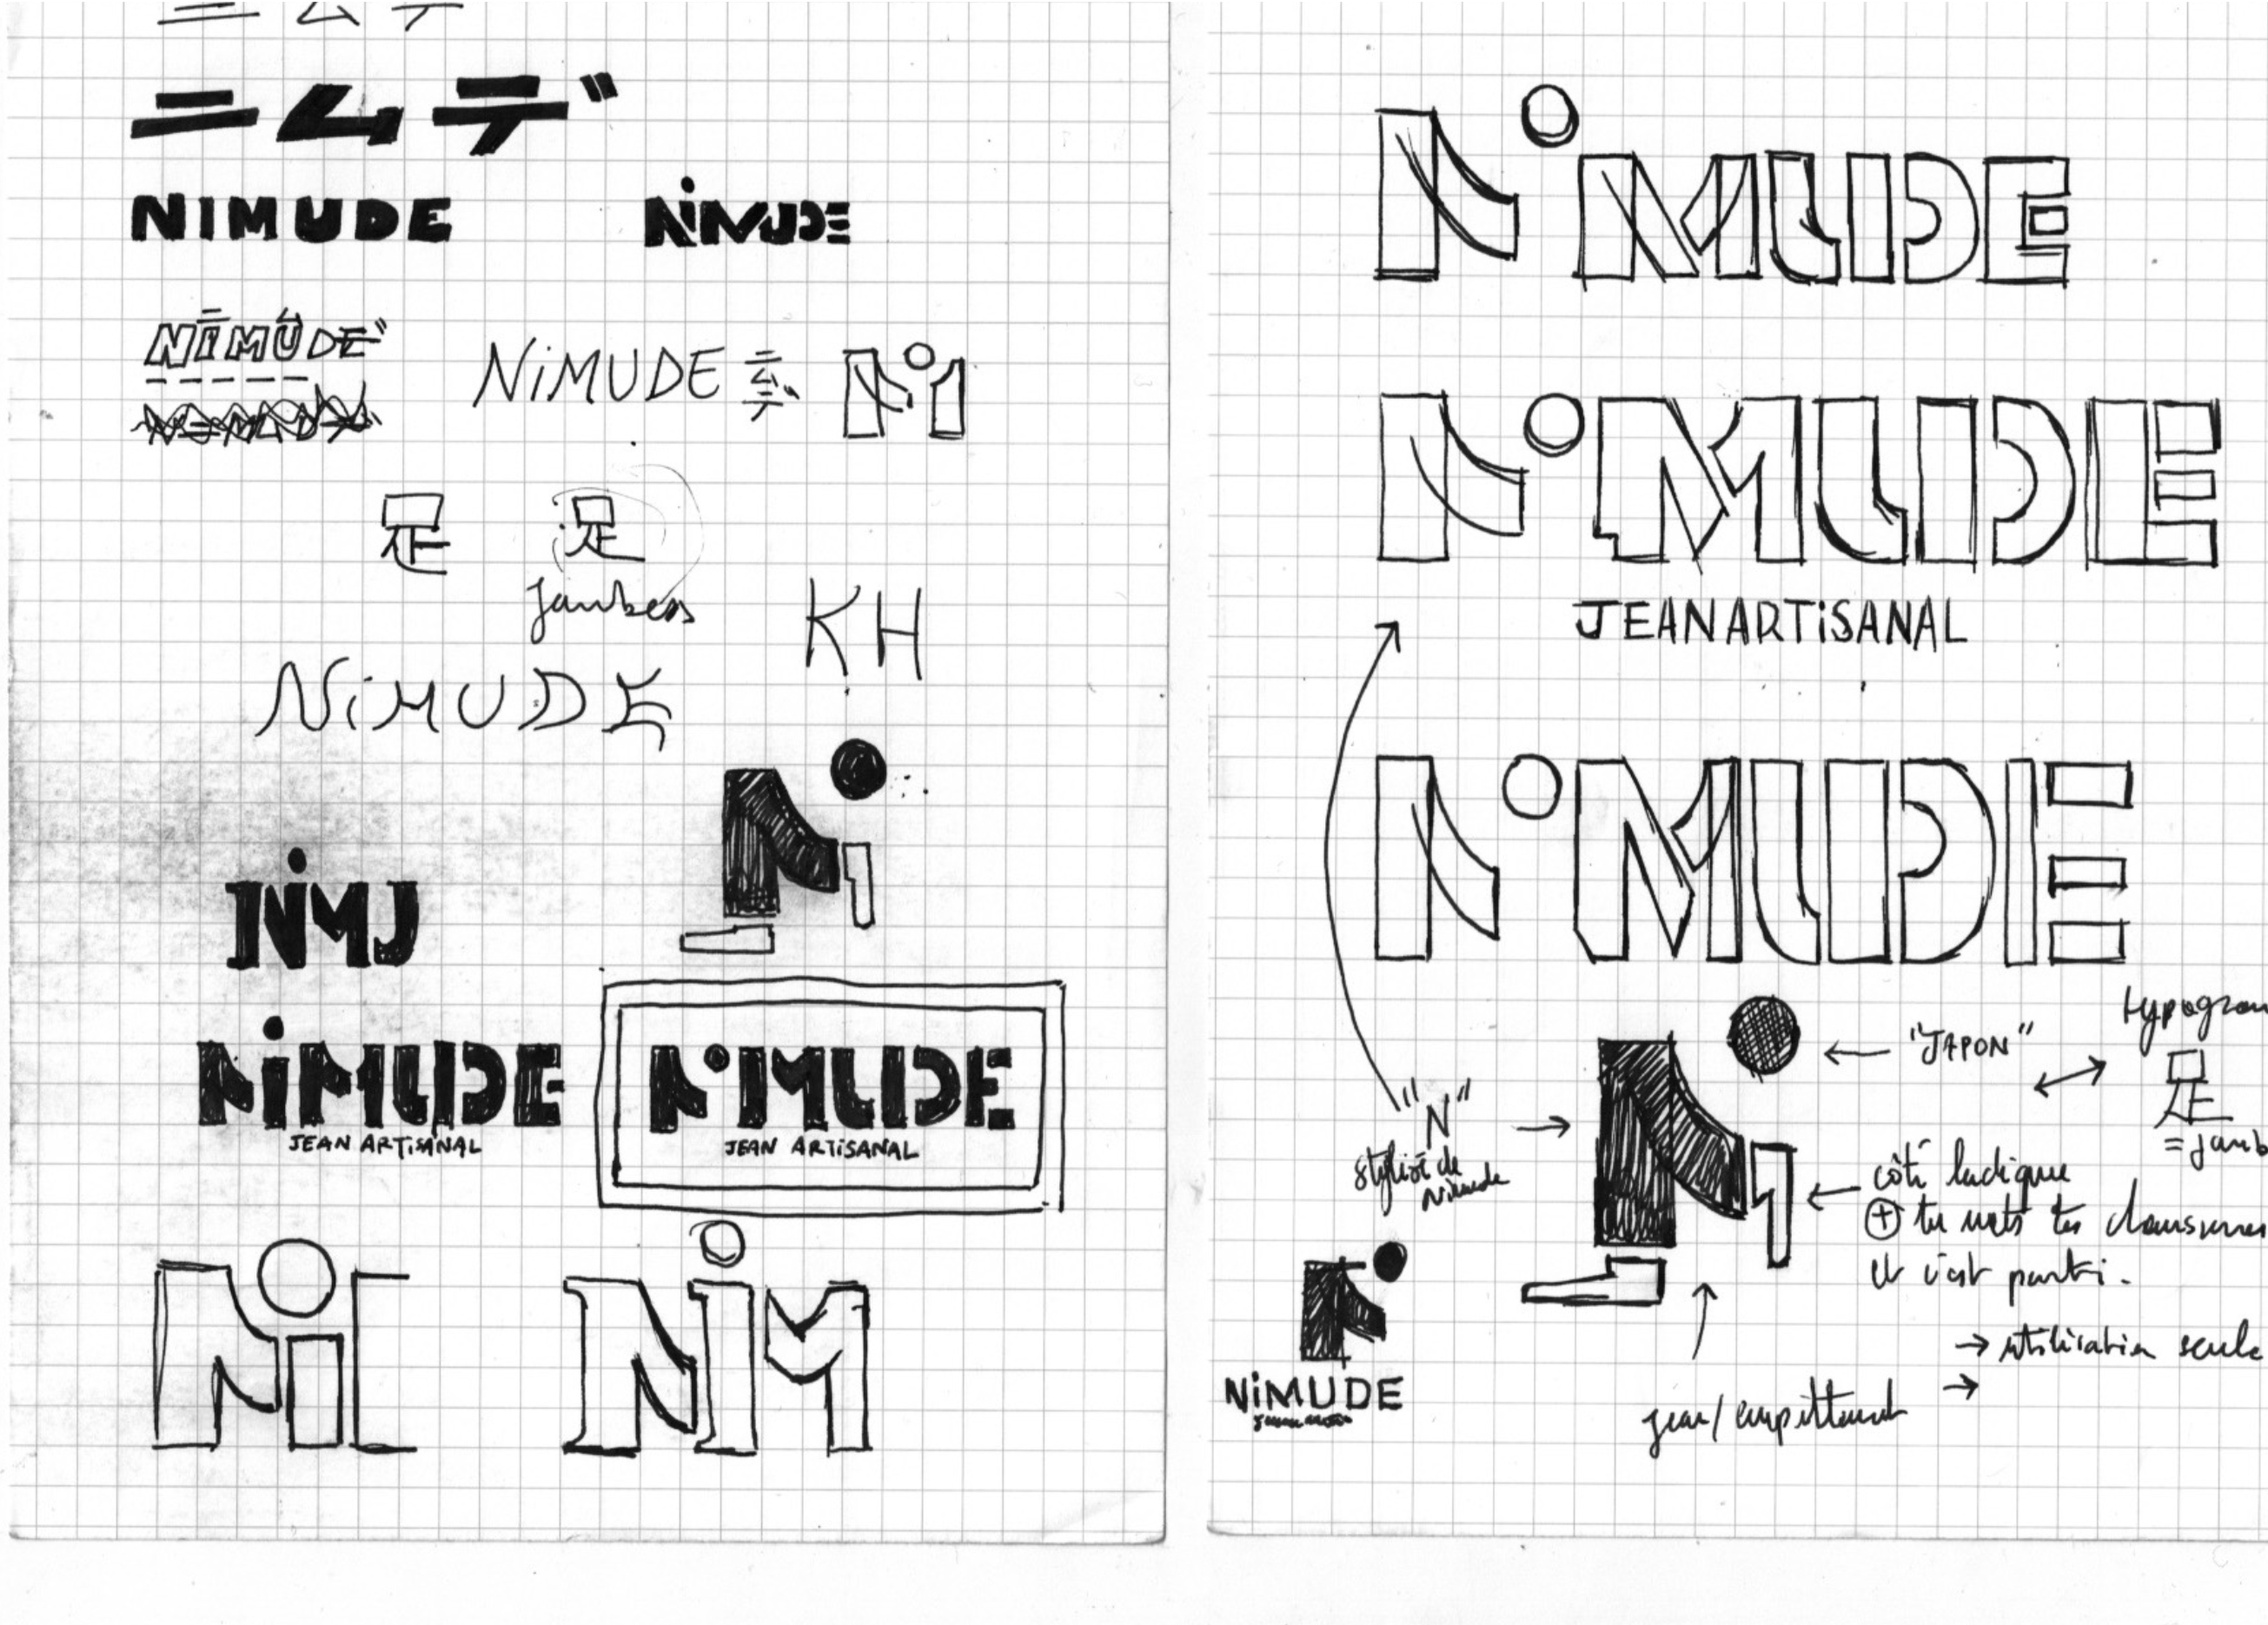 ニムテ
ニムデ
NIMUDE
NiMUDE
NIMUDE
NiMUDE ニムデ
Ni
足 足
jambes
KH
NiMUDE
NiMJ
NiMUDE
JEAN ARTiSANAL
NiMUDE
JEAN ARTiSANAL
Ni
NiM
NiMUDE
NiMUDE
JEAN ARTiSANAL
NiMUDE
typogram
"JAPON"
足
= jamb
"N"
stylisé de
Nimude
côté ludique
+ tu mets tes chaussures
et c'est parti.
→ utilisation seule
jean/empiètement →
NiMUDE